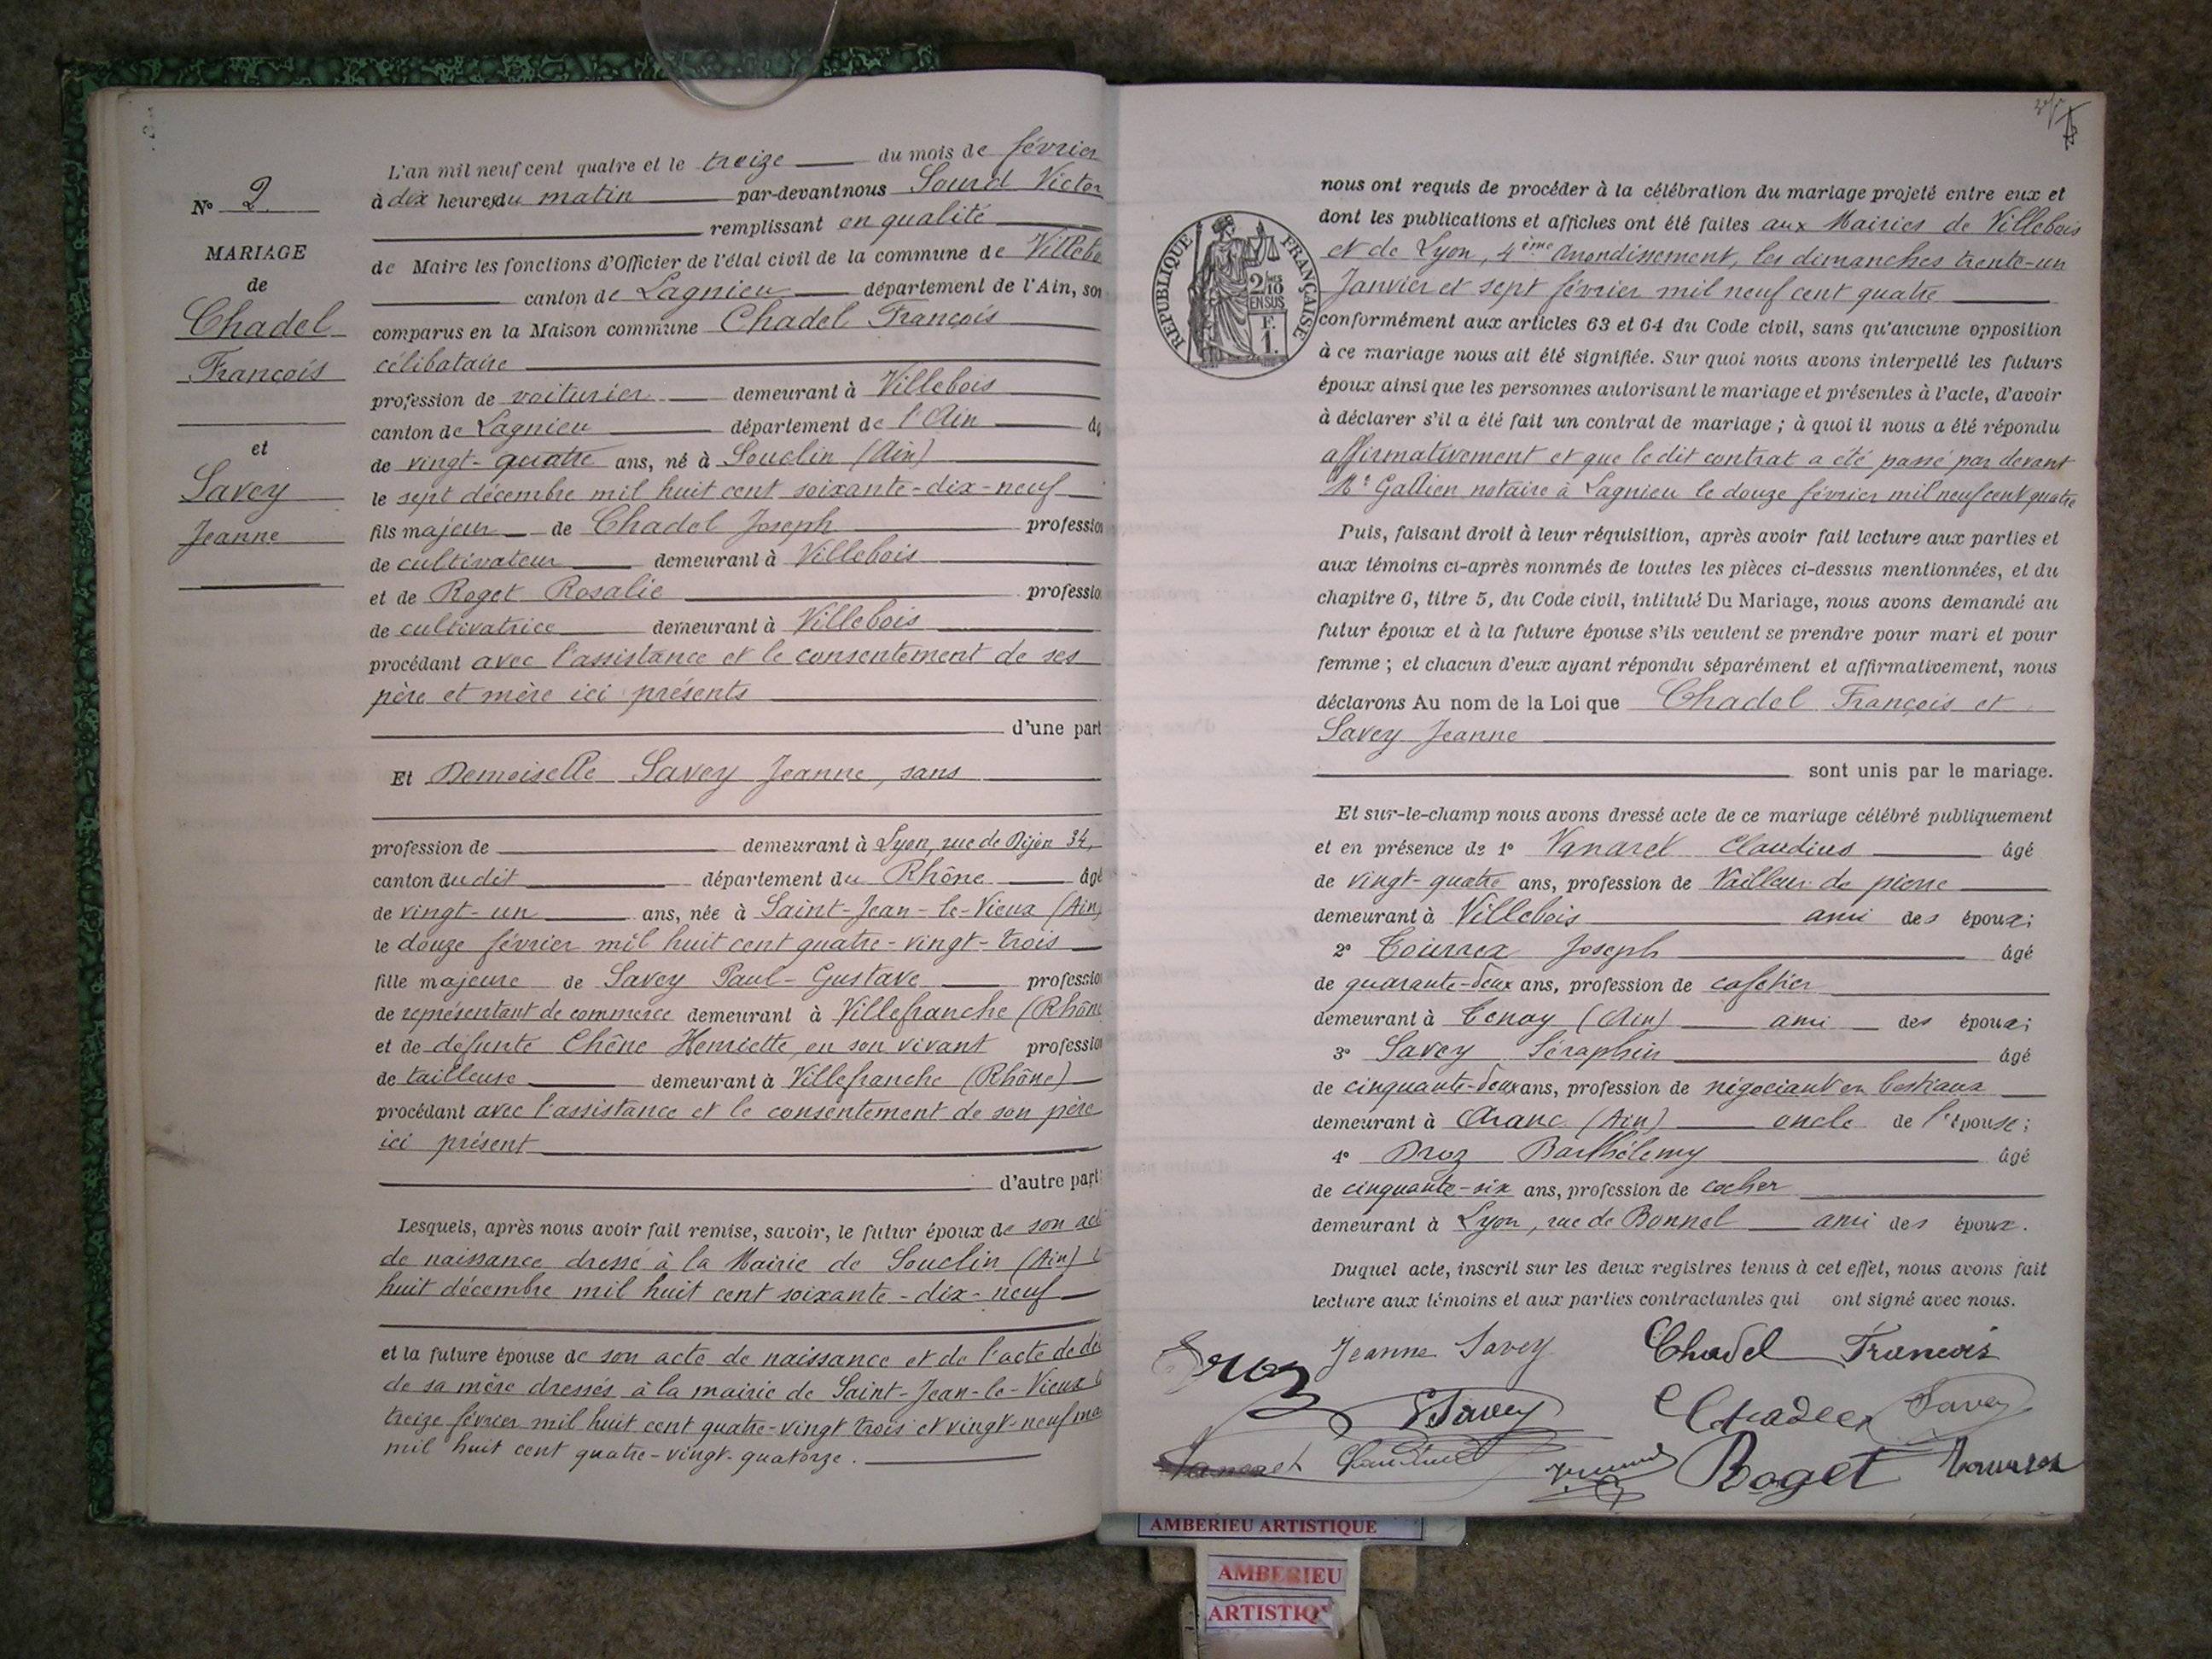 N° 2
MARIAGE
de
Chadel
François
et
Savey
Jeanne
L'an mil neuf cent quatre et le treize du mois de février
à dix heures du matin par-devant nous Sourd Victor
remplissant en qualité
de Maire les fonctions d'Officier de l'état civil de la commune de Villebo
canton de Lagnieu département de l'Ain, son
comparus en la Maison commune Chadel François
célibataire
profession de voiturier demeurant à Villebois
canton de Lagnieu département de l'Ain âg
de vingt-quatre ans, né à Souclin (Ain)
le sept décembre mil huit cent soixante-dix-neuf
fils majeur de Chadel Joseph profession
de cultivateur demeurant à Villebois
et de Roget Rosalie professio
de cultivatrice demeurant à Villebois
procédant avec l'assistance et le consentement de ses
père et mère ici présents
d'une part
Et Demoiselle Savey Jeanne, sans
profession de demeurant à Lyon, rue de Dijon 34,
canton du dit département du Rhône âgé
de vingt-un ans, née à Saint-Jean-le-Vieux (Ain)
le douze février mil huit cent quatre-vingt-trois
fille majeure de Savey Paul-Gustave profession
de représentant de commerce demeurant à Villefranche (Rhône
et de défunte Chêne Henriette, en son vivant profession
de tailleuse demeurant à Villefranche (Rhône)
procédant avec l'assistance et le consentement de son père
ici présent
d'autre part
Lesquels, après nous avoir fait remise, savoir, le futur époux de son act
de naissance dressé à la Mairie de Souclin (Ain) l
huit décembre mil huit cent soixante-dix-neuf
et la future épouse de son acte de naissance et de l'acte de dé
de sa mère dressés à la mairie de Saint-Jean-le-Vieux l
treize février mil huit cent quatre-vingt trois et vingt-neuf ma
mil huit cent quatre-vingt-quatorze.
RÉPUBLIQUE FRANÇAISE
2/10
EN SUS
F.
1.
nous ont requis de procéder à la célébration du mariage projeté entre eux et
dont les publications et affiches ont été faites aux Mairies de Villebois
et de Lyon, 4ème arrondissement, les dimanches trente-un
Janvier et sept février mil neuf cent quatre
conformément aux articles 63 et 64 du Code civil, sans qu'aucune opposition
à ce mariage nous ait été signifiée. Sur quoi nous avons interpellé les futurs
époux ainsi que les personnes autorisant le mariage et présentes à l'acte, d'avoir
à déclarer s'il a été fait un contrat de mariage ; à quoi il nous a été répondu
affirmativement et que le dit contrat a été passé par devant
Me Gallien notaire à Lagnieu le douze février mil neuf cent quatre
Puis, faisant droit à leur réquisition, après avoir fait lecture aux parties et
aux témoins ci-après nommés de toutes les pièces ci-dessus mentionnées, et du
chapitre 6, titre 5, du Code civil, intitulé Du Mariage, nous avons demandé au
futur époux et à la future épouse s'ils veulent se prendre pour mari et pour
femme ; et chacun d'eux ayant répondu séparément et affirmativement, nous
déclarons Au nom de la Loi que Chadel François et
Savey Jeanne
sont unis par le mariage.
Et sur-le-champ nous avons dressé acte de ce mariage célébré publiquement
et en présence de 1° Vanarel Claudius âgé
de vingt-quatre ans, profession de tailleur de pierre
demeurant à Villebois ami des époux;
2° Tourrex Joseph âgé
de quarante-deux ans, profession de cafetier
demeurant à Tenay (Ain) ami des époux;
3° Savey Séraphin âgé
de cinquante-deux ans, profession de négociant en bestiaux
demeurant à Aranc (Ain) oncle de l'épouse;
4° Droz Barthélemy âgé
de cinquante-six ans, profession de cocher
demeurant à Lyon, rue de Bonnel ami des époux.
Duquel acte, inscrit sur les deux registres tenus à cet effet, nous avons fait
lecture aux témoins et aux parties contractantes qui ont signé avec nous.
Droz Jeanne Savey Chadel François
Savey Chadel Savey
Roget Tourrex
AMBERIEU ARTISTIQUE
AMBERIEU
ARTISTIQ